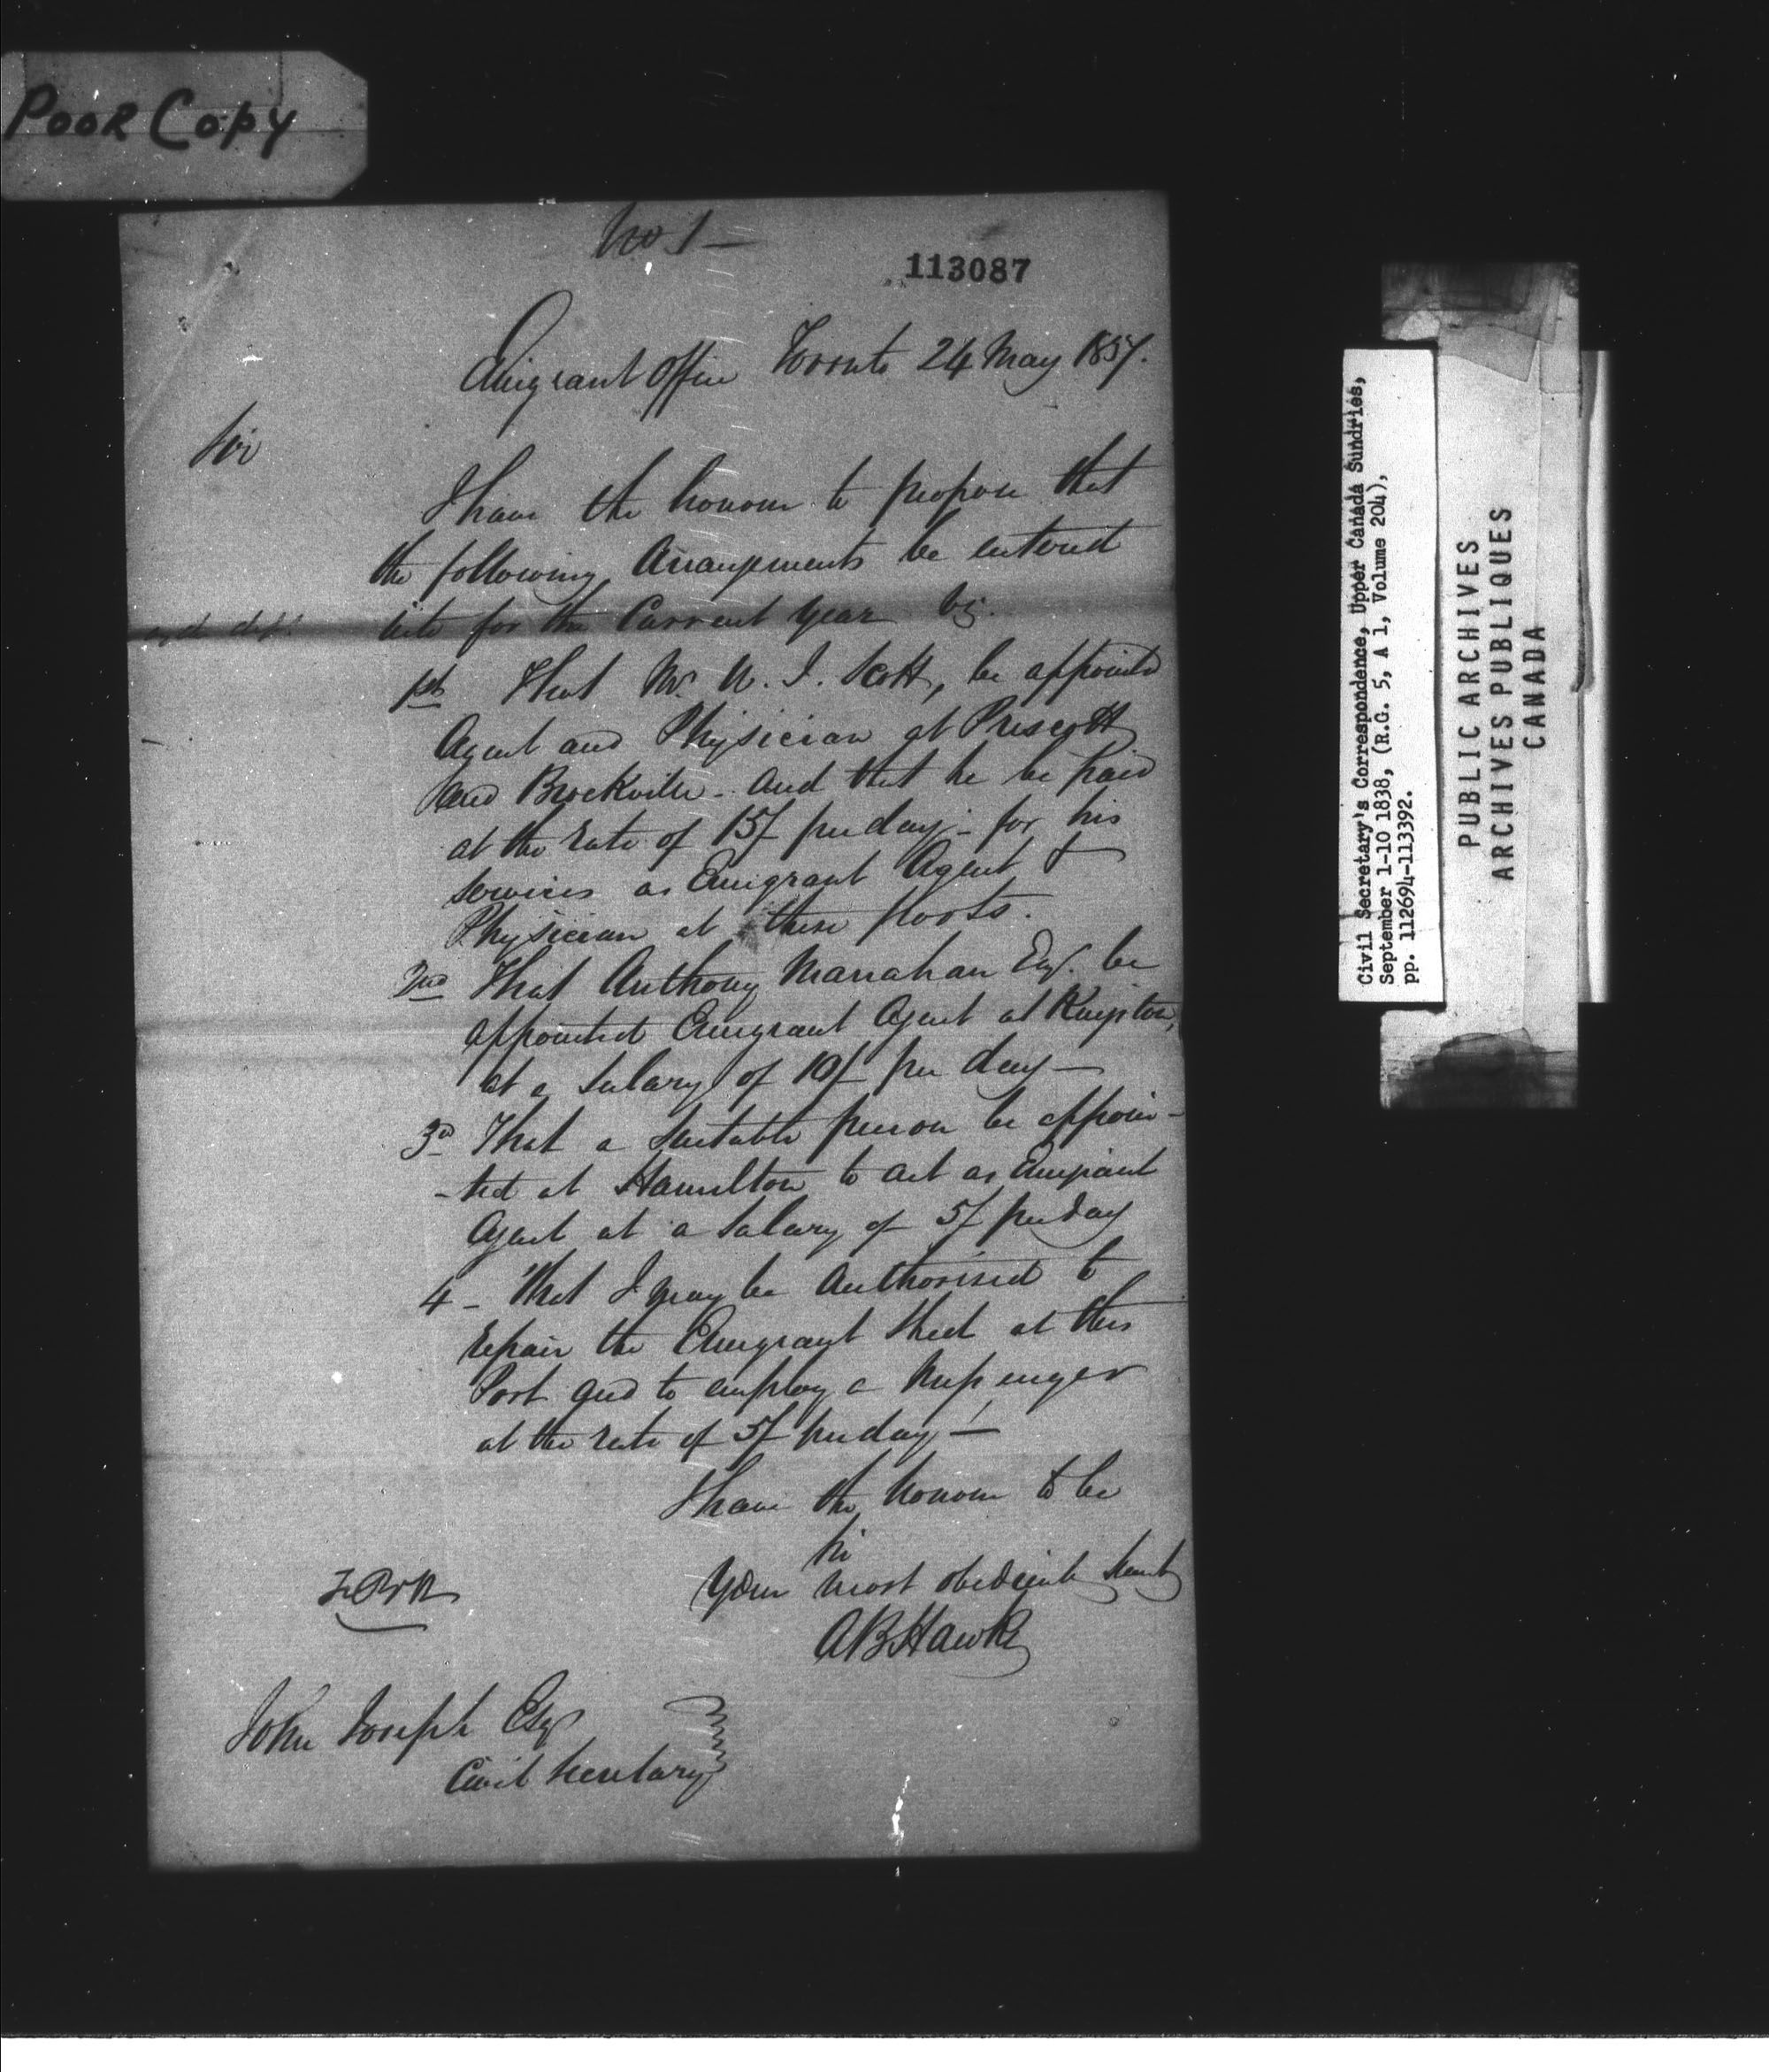 Poor Copy
No 1 —
113087
Emigrant Office Toronto 24 May 1837.
Sir
I have the honour to propose that
the following Arrangements be entered
into for the Current year viz.
1st That Mr. W. J. Scott, be appointed
Agent and Physician at Prescott
and Brockville - and that he be paid
at the rate of 15/ per day - for his
services as Emigrant Agent &
Physician at these ports.
2nd That Anthony Manahan Esq. be
appointed Emigrant Agent at Kingston,
at a Salary of 10/ per day —
3d That a suitable person be appoin-
-ted at Hamilton to act as Emigrant
Agent at a Salary of 5/ per day
4 - That I may be Authorised to
repair the Emigrant Shed at this
Port and to employ a Messenger
at the rate of 5/ per day —
I have the honour to be
Sir
Your most obedient Servt
A B Hawke
John Joseph Esqr
Civil Secretary
Civil Secretary's Correspondence, Upper Canada Sundries,
September 1-10 1838, (R.G. 5, A 1, Volume 204),
pp. 112694-113392.
PUBLIC ARCHIVES
ARCHIVES PUBLIQUES
CANADA